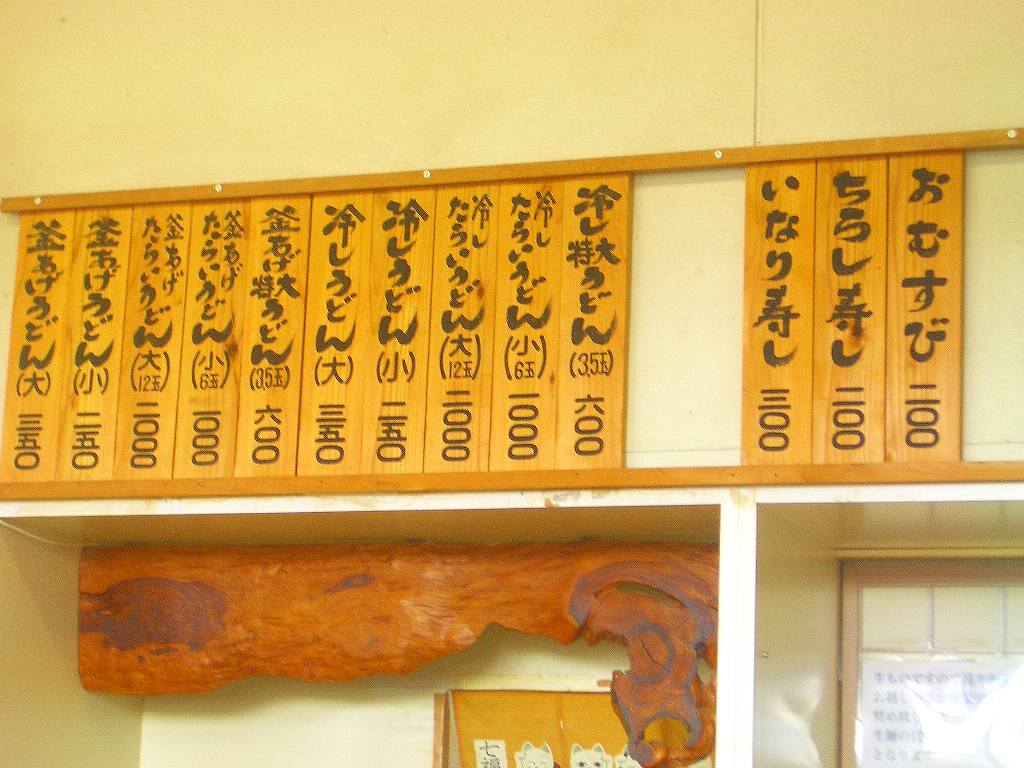 おむすび 二〇〇
ちらし寿し 二〇〇
いなり寿し 三〇〇
冷し特大うどん(3.5玉) 六〇〇
冷したらいうどん(小6玉) 一〇〇〇
冷したらいうどん(大12玉) 二〇〇〇
冷しうどん(小) 二五〇
冷しうどん(大) 三五〇
釜あげ特大うどん(3.5玉) 六〇〇
釜あげたらいうどん(小6玉) 一〇〇〇
釜あげたらいうどん(大12玉) 二〇〇〇
釜あげうどん(小) 二五〇
釜あげうどん(大) 三五〇
七福
生ものですので
お越し
となります